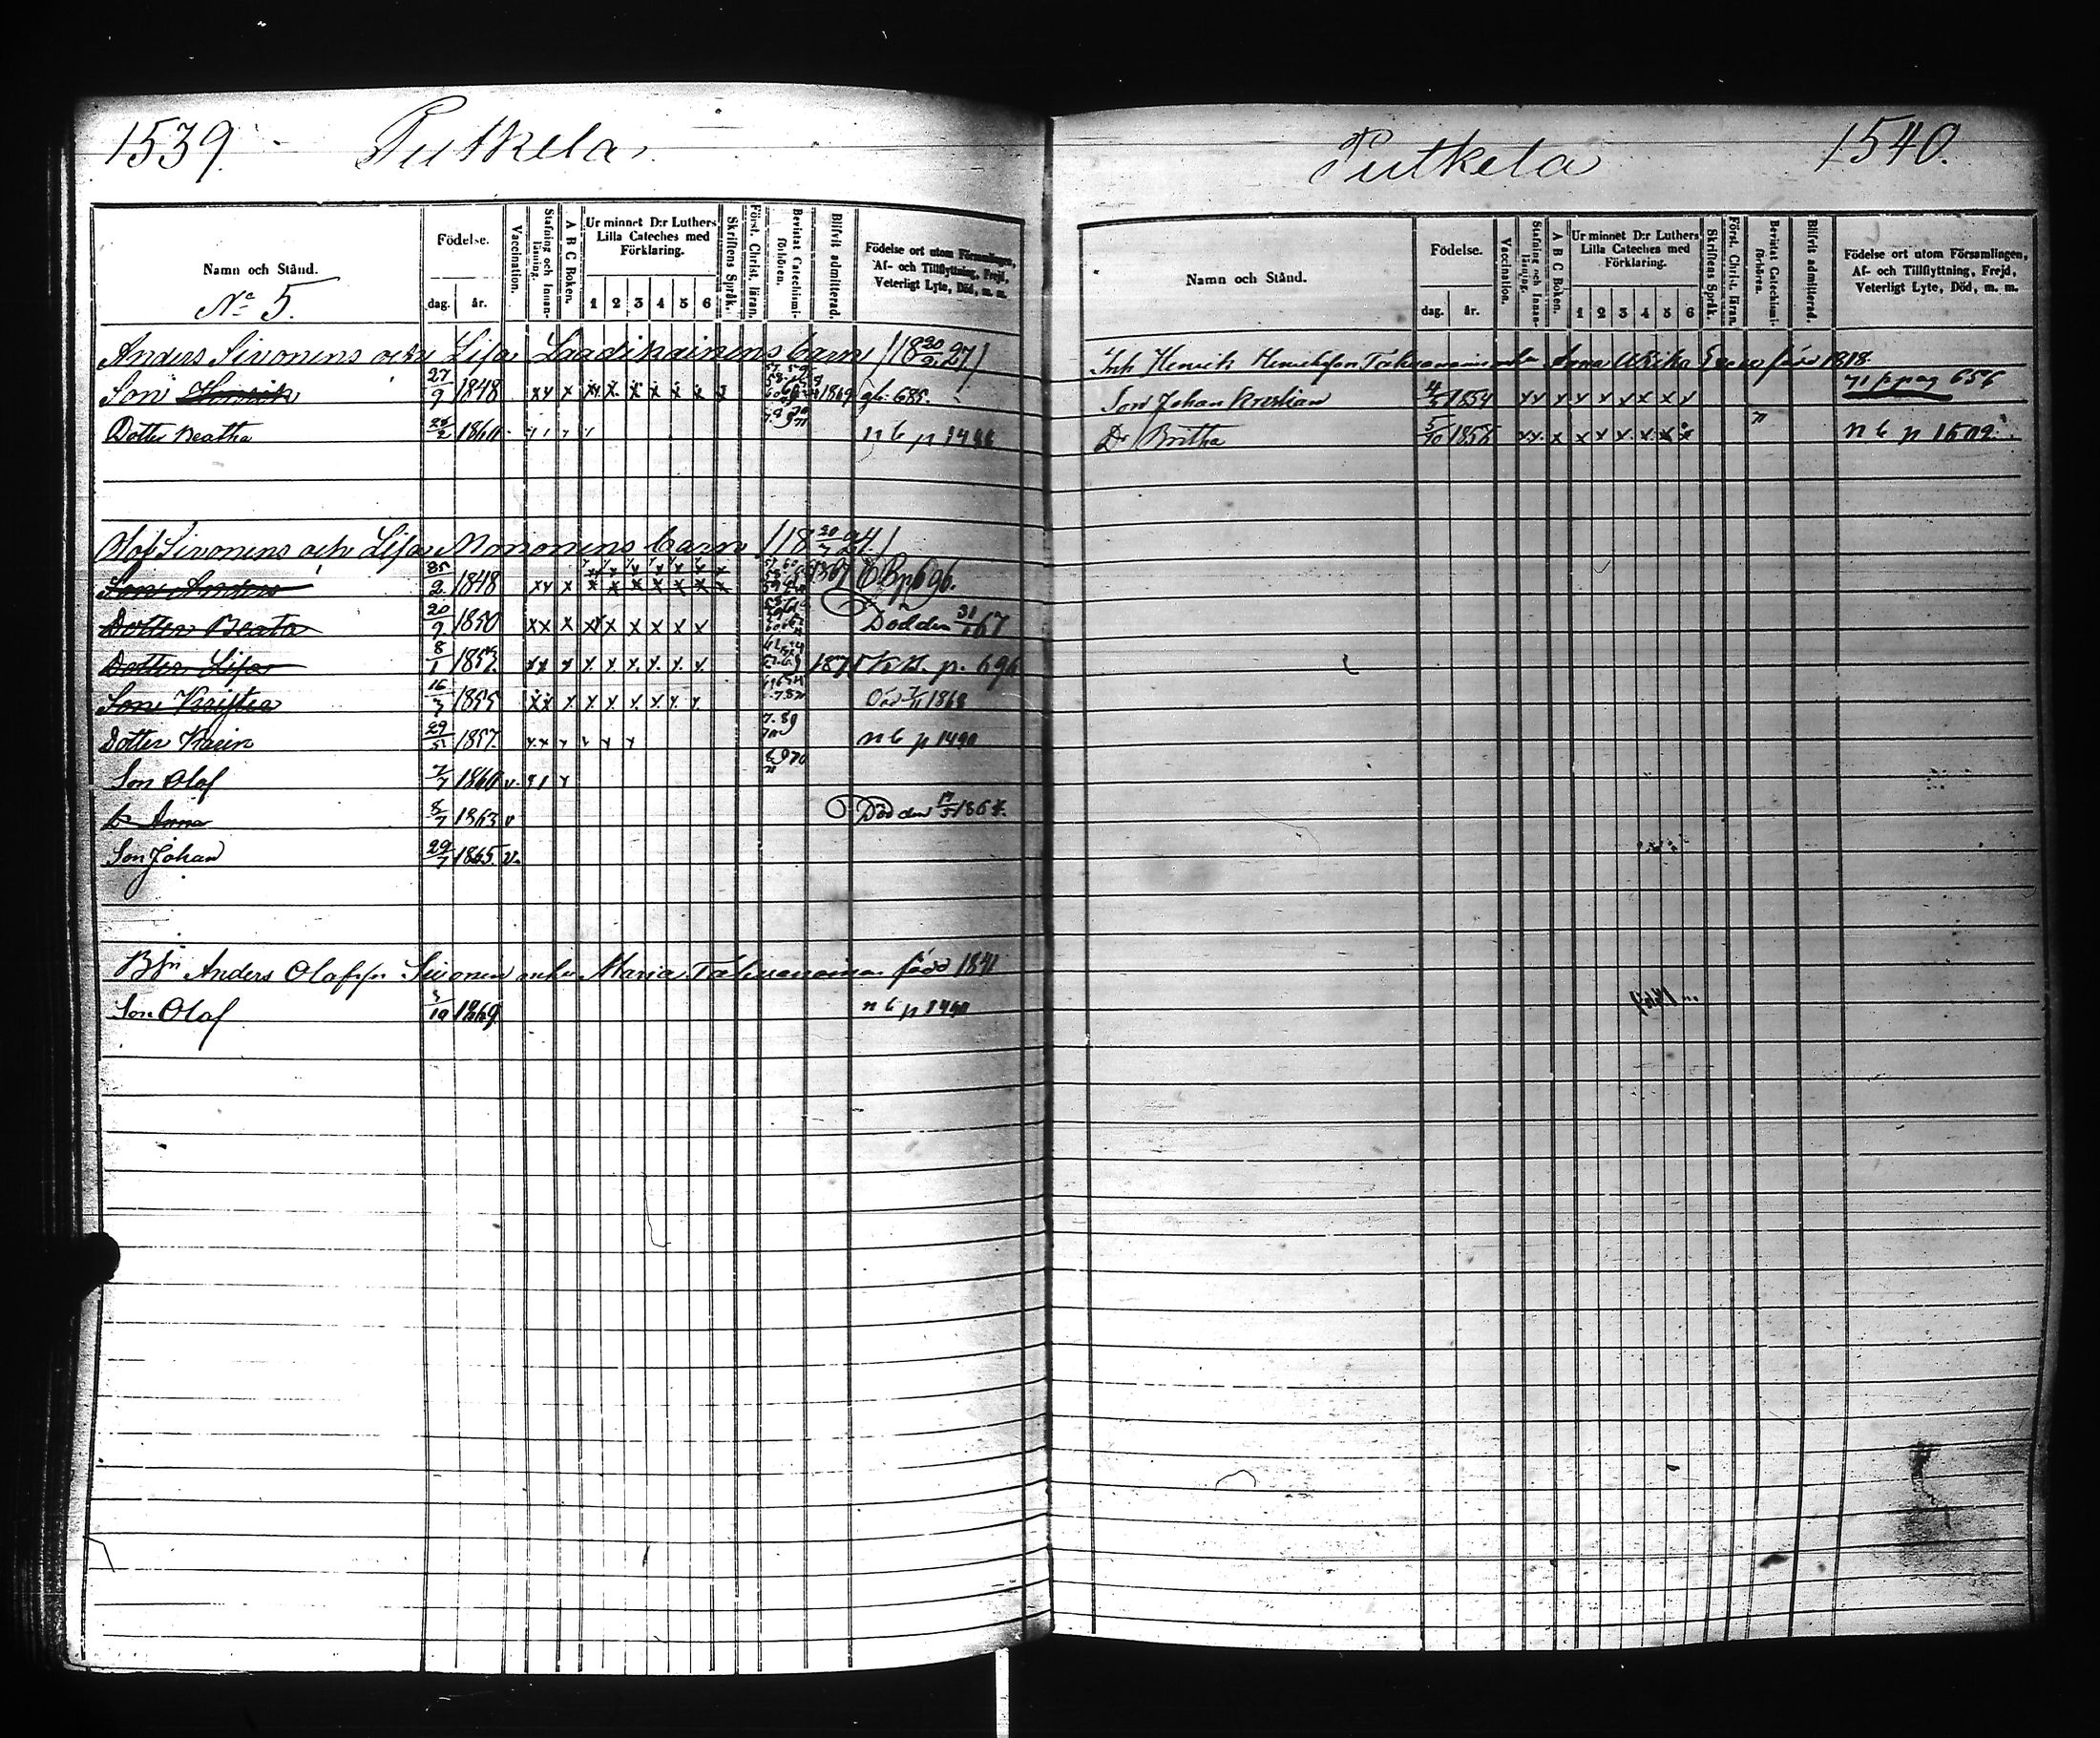 1539.
Putkela.
Namn och Stånd.
Nº 5.
Födelse.
dag. år.
Vaccination.
Stafning och Innanläsning.
A B C Boken.
Ur minnet D:r Luthers Lilla Cateches med Förklaring.
1 2 3 4 5 6
Skriftens Språk.
Först. Christ. läran.
Bevistat Catechismi-förhören.
Blifvit admitterad.
Födelse ort utom Församlingen, Af- och Tillflyttning, Frejd, Veterligt Lyte, Död, m. m.
Anders Sivonens och Lisa barn
Son Henrik 27/9 1848 x x x x x x x x x 1869 gb. 685.
Dotter Beatha 1860
Olof Sivonens och Lisa Mononens barn
Son Anders 1848 x x x x x x x x x x 1867 696.
Dotter Beata 20/9 1850 x x x x x x x x x Död den 67
Dotter Lisa 8/1 1853 x x x x x x x x x 1871 p. 696
Son Krister 1855 x x x x x x x x x 1868
Dotter Karin 1857. n b p 1490
Son Olof 7/7 1860 v.
D:r Anna 8/7 1863 v Död den
Son Johan 29/7 1865 v.
Anders Olofss. Sivonen Maria född 1841
Son Olof 1869 n b p 1490
Putkela
1540.
Namn och Stånd.
Födelse.
dag. år.
Vaccination.
Stafning och Innanläsning.
A B C Boken.
Ur minnet D:r Luthers Lilla Cateches med Förklaring.
1 2 3 4 5 6
Skriftens Språk.
Först. Christ. läran.
Bevistat Catechismi-förhören.
Blifvit admitterad.
Födelse ort utom Församlingen, Af- och Tillflyttning, Frejd, Veterligt Lyte, Död, m. m.
Inh Henrik Henriksson Anna Ulrika född 1818.
Son Johan Kristian 1854 x x x x x x x x x 71 p pag 656
Dr Britha 5/10 x x x x x x x x x 71 n b p